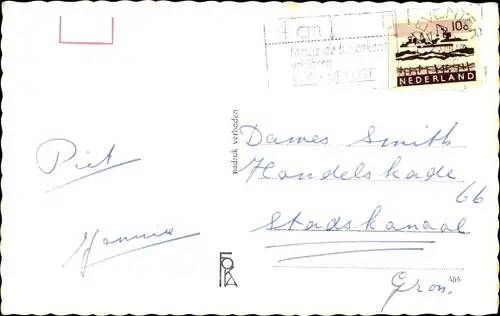 4 cm
langs de bovenkant
DEVENTER
10c
NEDERLAND
Piet
Hannie
nadruk verboden
Dames Smith
Handelskade 66
Stadskanaal
Gron.
FOKA
466